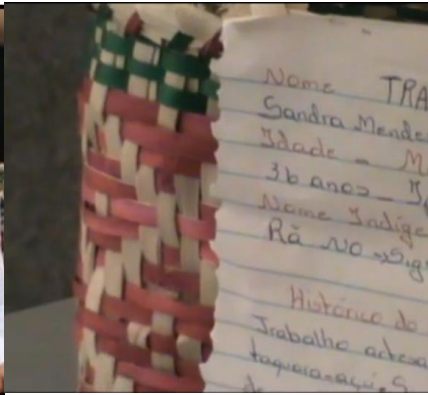 Nome TRA
Sandra Mende
Idade - M
36 anos - I
Nome Indíge
Rã NO → Sig
Histórico do
Trabalho artesa
taquara-açú. S